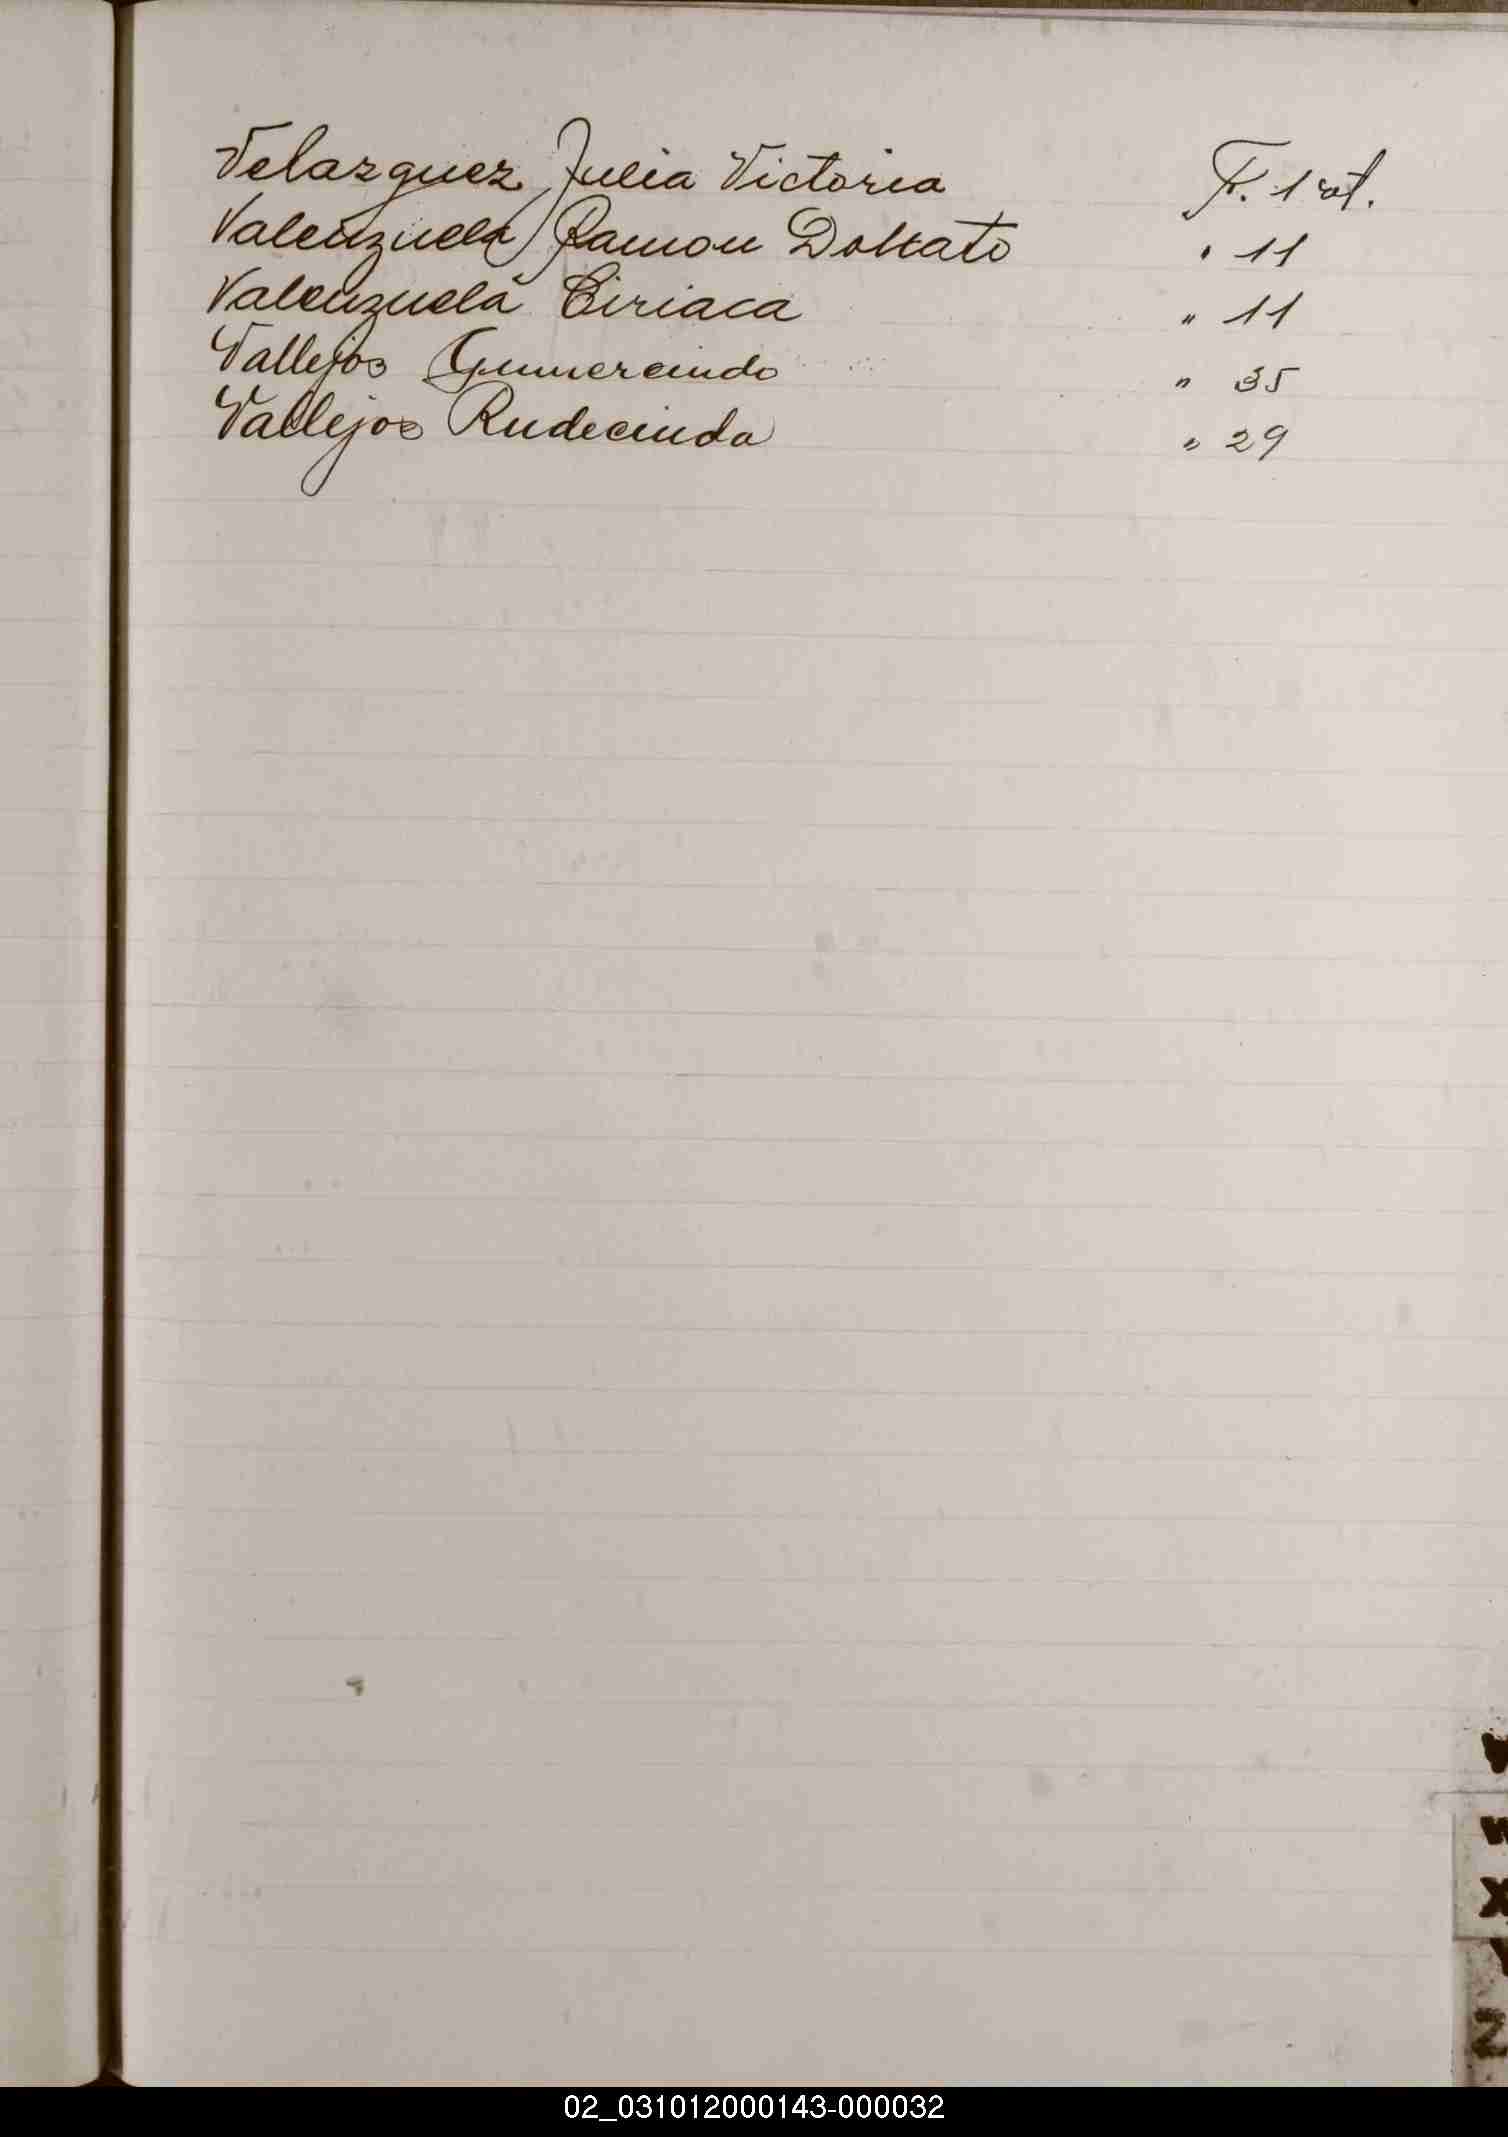 Velazquez Julia Victoria F. 1 vt.
Valenzuela Ramon Donato " 11
Valenzuela Ciriaca " 11
Vallejos Gumercindo " 35
Vallejos Rudecinda " 29
V
W
X
Y
Z
02_031012000143-000032